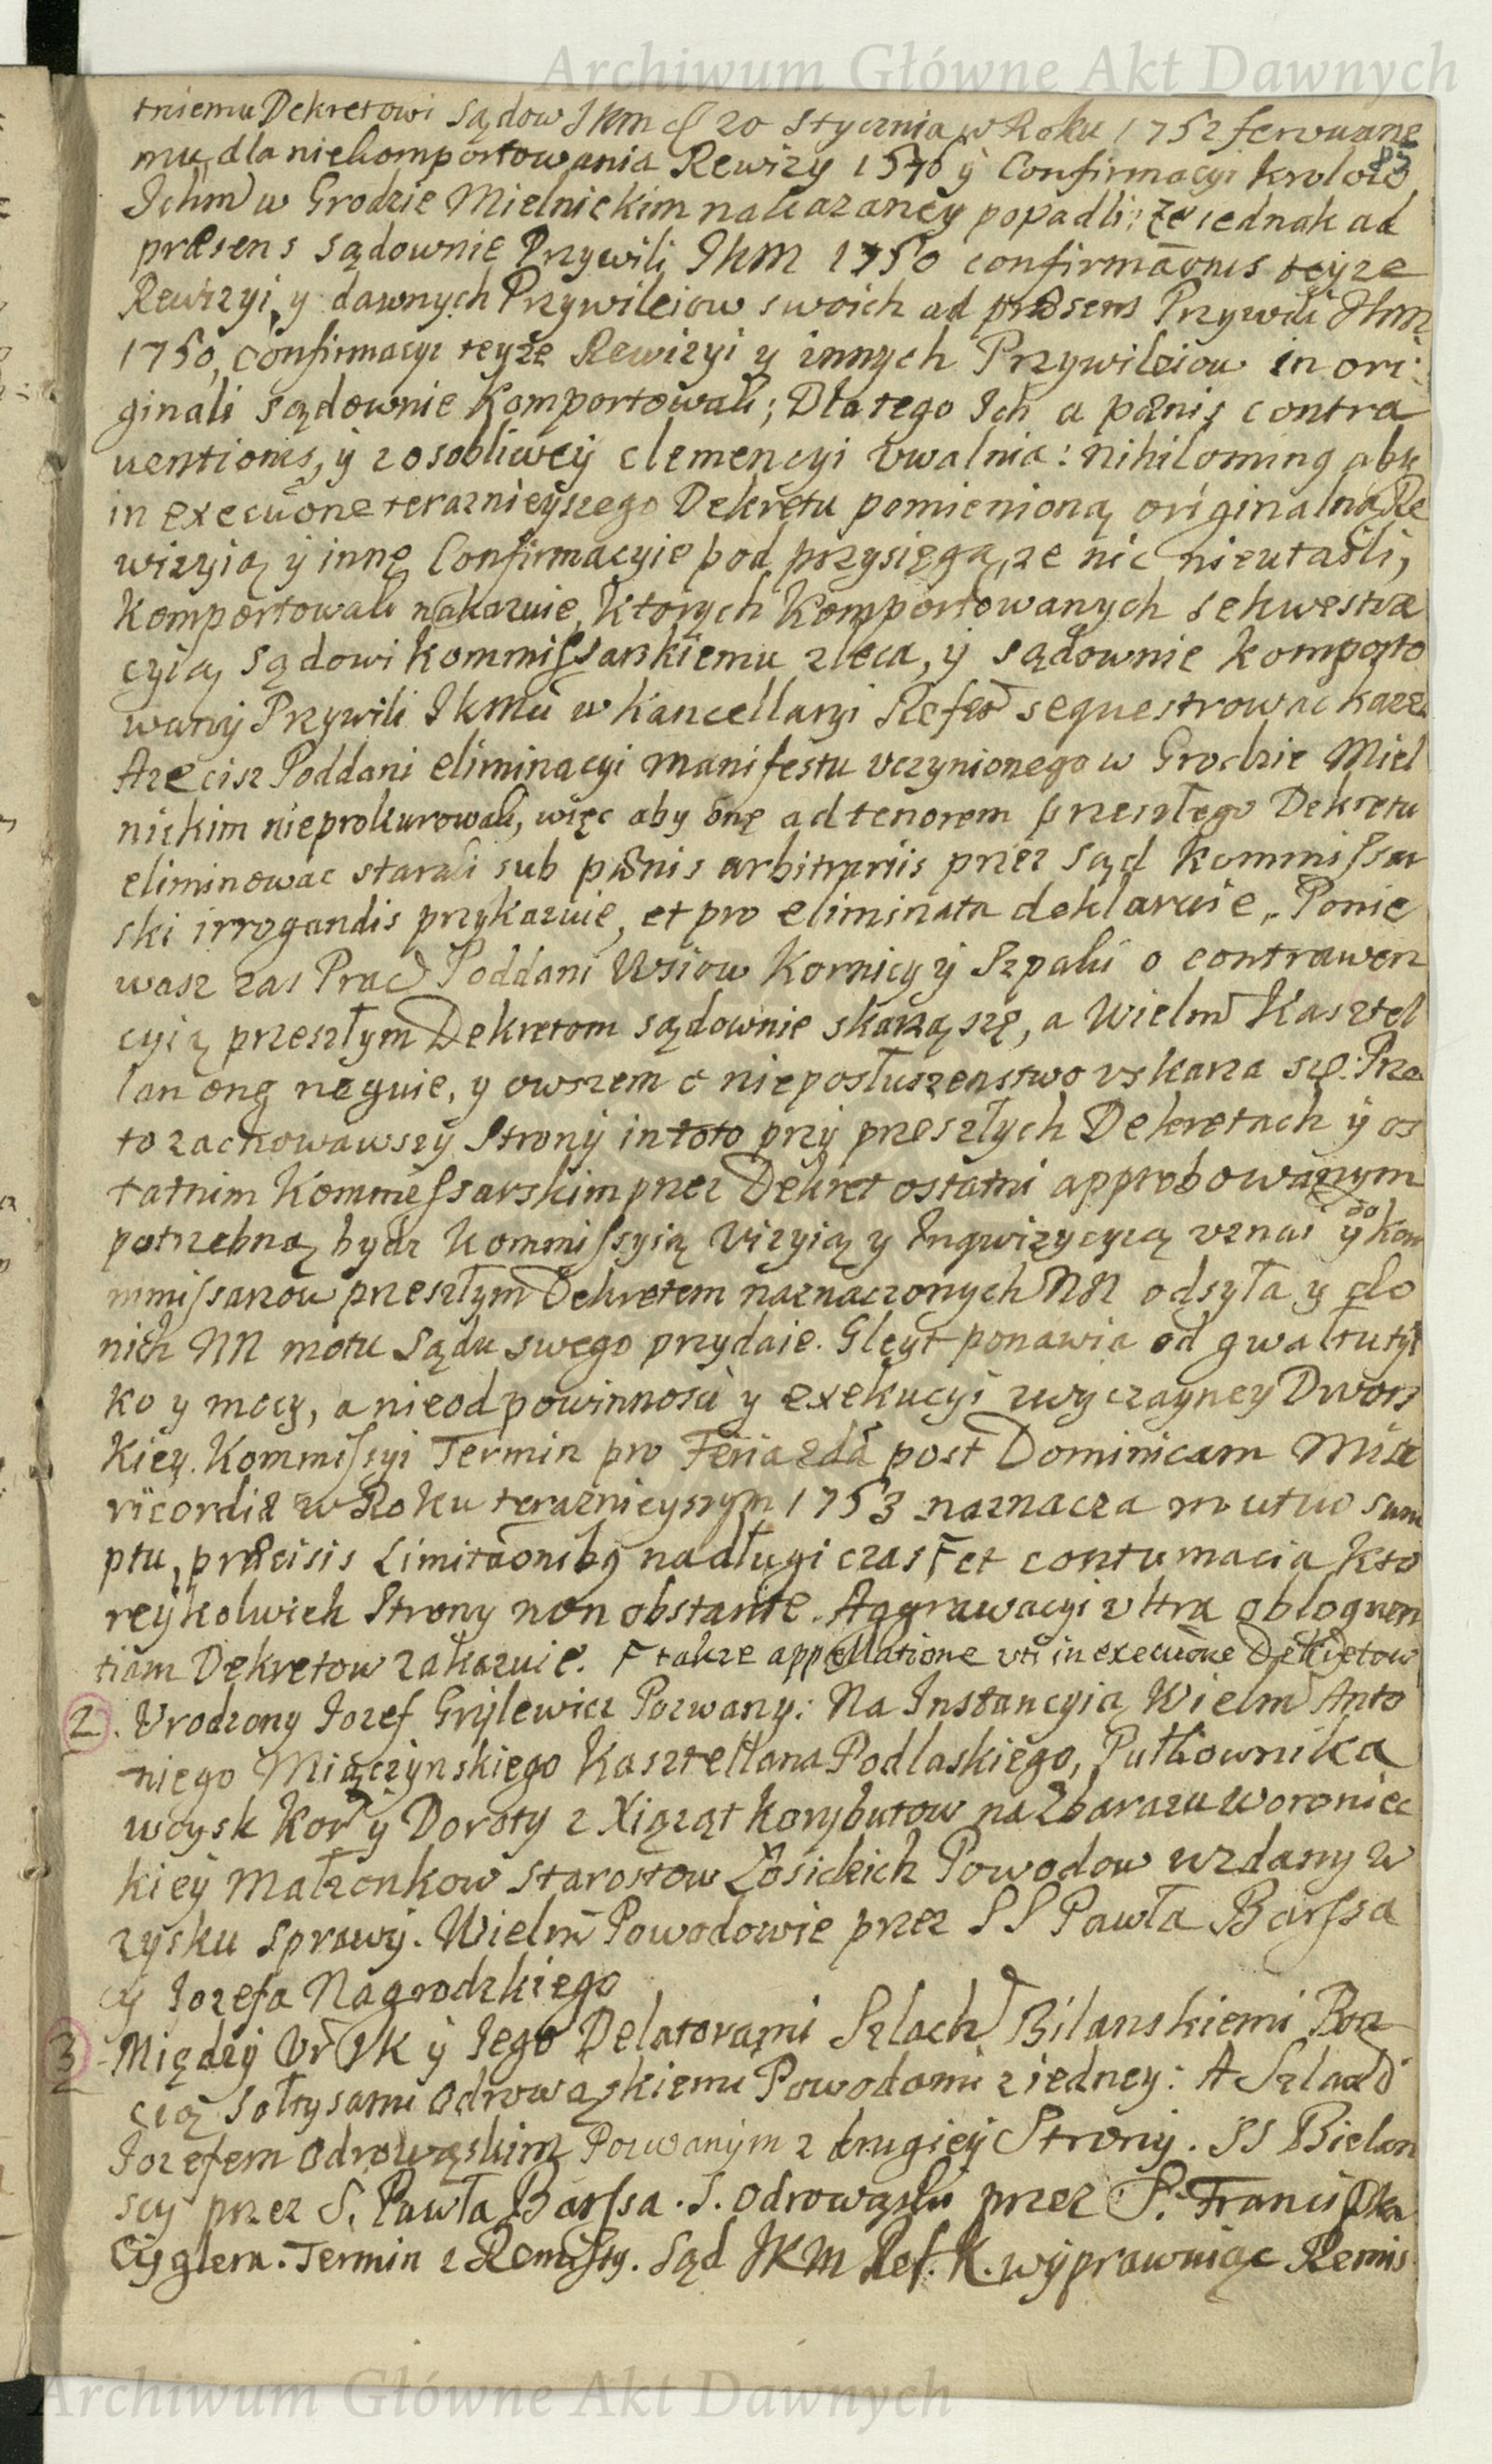 Archiwum Główne Akt Dawnych
tniemu Dekretowi Sądow Jkmci 20 Stycznia w Roku 1752 ferowane
83
mu, dla niekomportowania Rewizy 1570 y Confirmacyi krolow
Ichm w Grodzie Mielnickim nakazaney popadli: że iednak ad
præsens sądownie Przywili JKM 1750 confirmãonis teyże
Rewizyi, y dawnych Przywileiow swoich ad præsens Przywili Jkm
1750, confirmacyi teyże Rewizyi y innych Przywileiow in ori
ginali sądownie komportowali; Dla tego Ich a pænis contra
uentionis, y z osobliwey clemencyi vwalnia: nihilominq aby
in execuõne teraznieyszego Dekretu pomienioną originalną Re
wizyią y inne Confirmacyie pod przysięgą, ze nic nieutaili,
komportowali nakazuie, ktorych komportowanych sekwestra
cyią Sądowi kommissarskiemu zleca, y sądownie komporto
wany Przywili Jkmci w Kancellaryi Refer sequestrowac kaze.
Aze cisz Poddani eliminacyi manifestu vczynionego w Grodzie Miel
nickim nieprokurowali, więc aby onę ad tenorem przeszłego Dekretu
eliminowac starali sub pænis arbitrariis przez Sąd kommissar
ski irrogandis przykazuie, et pro eliminata deklaruie „ Ponie
wasz zas Prac Poddani Wsiow Kornicy y Szpaki o contrawen
cyią przeszłym Dekretom sądownie skarzą szę, a Wielm Kasztel
lan onę neguie, y owszem o nieposłuszenstwo vskarza szę: Prze
to zachowawszy Strony in toto przy przeszłych Dekretach y os
tatnim Kommissarskim przez Dekret ostatni approbowanym
potrzebną bydz Kommissyią Wizyią y Inqwizycyią vznai y do kom
mmissarzow przeszłym Dekretem naznaczonych NN odsyła y do
nich NN motu Sądu swego przydaie. Gleyt ponawia od gwałtu tyl
ko y mocy, a nieod powinnosci y exekucyi zwyczayney Dwors
kiey. Kommissyi Termin pro Feria 2dâ post Dominicam Mise
ricordiæ w Roku teraznieyszym 1753 naznacza mutuo sum
ptu, præcisis Limitãonibq na długi czas, F et contumacia kto
reykolwiek Strony non obstante. Aggrawacyi vltra obloquen
tiam Dekretow zakazuie. F takze appellatione vti in execuõne Dekretow
2. Vrodzony Jozef Grylewicz Pozwany: Na Instancyią Wielm Anto
niego Miączynskiego Kasztellana Podlaskiego, Pułkownika
woysk Kor y Doroty z Xiąząt Korybutow na Zbarazu woroniec
kiey Małzonkow Starostow Łosickich Powodow wzdany w
zysku sprawy. Wielm Powodowie przez SS Pawła Barssa
y Jozefa Nagrodzkiego
3 Między Vr JK y Iego Delatorami Szlach Bilanskiemi Bra
cią Sołtysami Odrowąskiemi Powodami z iedney: A Szlach
Jozefem Odrowąskim Pozwanym z drugiey Strony. SS Bielan
scy przez S. Pawła Barssa. S. Odrowąski przez S. Franciszka
Cyglera. Termin z Remissy. Sąd JKM Ref. K. wyprawuiąc Remis
Archiwum Główne Akt Dawnych